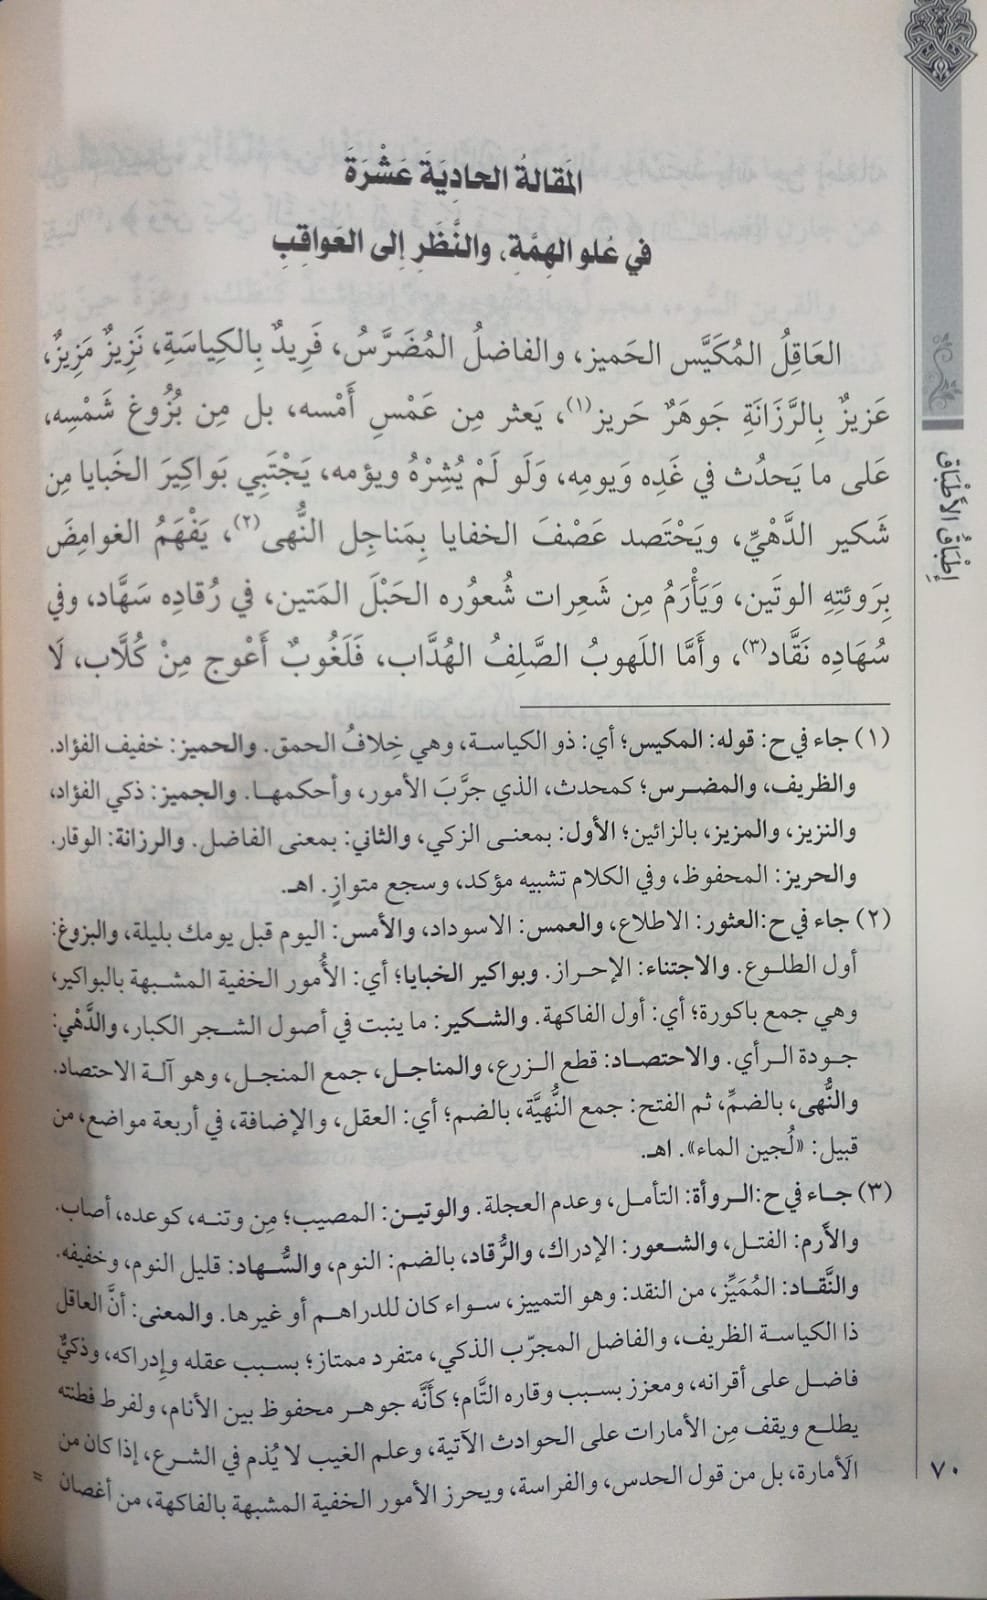 المَقالةُ الحادِيَةَ عَشْرَةَ
في عُلو الهِمَّةِ، والنَّظَرِ إلى العَواقِبِ
العَاقِلُ المُكَيَّس الحَميز، والفاضلُ المُضَرَّسُ، فَرِيدٌ بِالكِياسَةِ، نَزِيزٌ مَزِيزٌ،
عَزيزٌ بِالرَّزَانَةِ جَوهَرٌ حَريز(١)، يَعثر مِن عَمْسِ أَمْسه، بل مِن بُزُوغ شَمْسِه،
عَلى ما يَحدُث في غَدِه وَيومِه، وَلَو لَمْ يُشِرْهُ ويؤمه، يَجْتَبِي بَواكِيرَ الخَبايا مِن
شَكير الدَّهْيِّ، ويَحْتَصد عَصْفَ الخفايا بِمَناجِل النُّهى(٢)، يَفْهَمُ الغوامِضَ
بِرَوئتِهِ الوتَين، وَيَأْرَمُ مِن شَعِرات شُعورُه الحَبْلَ المَتين، في رُقادِه سَهَّاد، وفي
سُهَادِه نَقَّاد(٣)، وأَمَّا اللَهوبُ الصَّلِفُ الهُذَّاب، فَلَغُوبٌ أَعْوج مِنْ كُلَّاب، لَا
(١) جاء في ح: قوله: المكيس؛ أي: ذو الكياسة، وهي خِلافُ الحمق. والحميز: خفيف الفؤاد.
والظريف، والمضرس؛ كمحدث، الذي جرَّبَ الأمور، وأحكمها. والجميز: ذكي الفؤاد،
والنزيز، والمزيز، بالزائين؛ الأول: بمعنى الزكي، والثاني: بمعنى الفاضل. والرزانة: الوقار.
والحريز: المحفوظ، وفي الكلام تشبيه مؤكد، وسجع متوازٍ. اهـ.
(٢) جاء في ح:العثور: الاطلاع، والعمس: الاسوداد، والأمس: اليوم قبل يومك بليلة، والبزوغ:
أول الطلوع. والاجتناء: الإحراز. وبواكير الخبايا؛ أي: الأُمور الخفية المشبهة بالبواكير،
وهي جمع باكورة؛ أي: أول الفاكهة. والشكير: ما ينبت في أصول الشجر الكبار، والدَّهْي:
جودة الرأي. والاحتصاد: قطع الزرع، والمناجل، جمع المنجل، وهو آلة الاحتصاد.
والنُّهى، بالضمِّ، ثم الفتح: جمع النُّهيَّة، بالضم؛ أي: العقل، والإضافة، في أربعة مواضع، من
قبيل: «لُجين الماء». اهـ.
(٣) جاء في ح:الروأة: التأمل، وعدم العجلة. والوتين: المصيب؛ مِن وتنه، كوعده، أصاب.
والأَرم: الفتل، والشعور: الإدراك، والرُّقاد، بالضم: النوم، والسُّهاد: قليل النوم، وخفيفه.
والنَّقاد: المُمَيِّز، من النقد: وهو التمييز، سواء كان للدراهم أو غيرها. والمعنى: أنَّ العاقل
ذا الكياسة الظريف، والفاضل المجرّب الذكي، متفرد ممتاز؛ بسبب عقله وإدراكه، وذكيٌّ
فاضل على أقرانه، ومعزز بسبب وقاره التَّام؛ كأنَّه جوهر محفوظ بين الأنام، ولفرط فطنته
يطلع ويقف مِن الأمارات على الحوادث الآتية، وعلم الغيب لا يُذم في الشرع، إذا كان من
الأمارة، بل من قول الحدس، والفراسة، ويحرز الأمور الخفية المشبهة بالفاكهة، من أغصان
=
إِطْبَاقُ الأَطْبَاقِ
٧٠